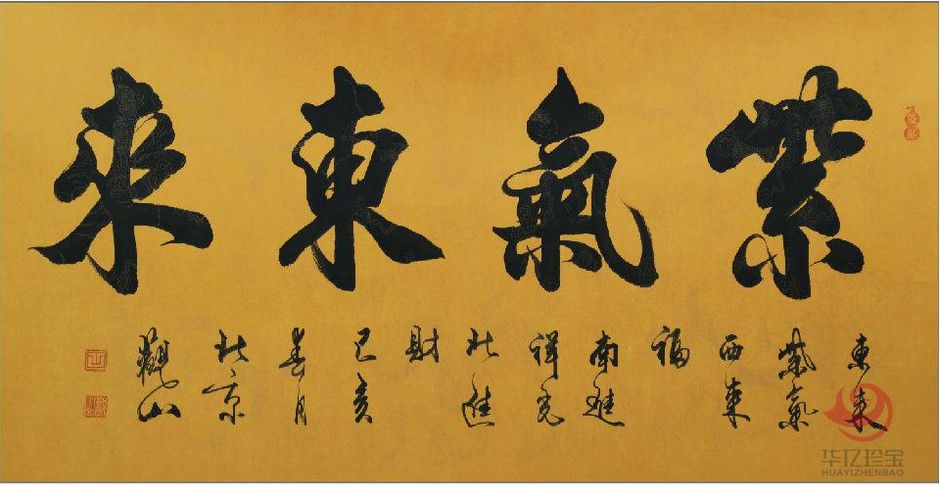 紫氣東來
東来
紫氣
西来
福
南進
祥光
北進
財
己亥
春月
北京
觀山
华亿珍宝
HUAYIZHENBAO